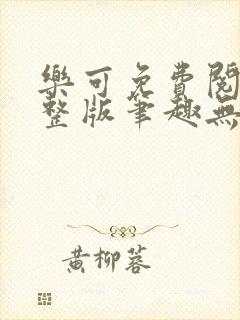 樂可免費閱
整版筆趣無
黃柳蓉